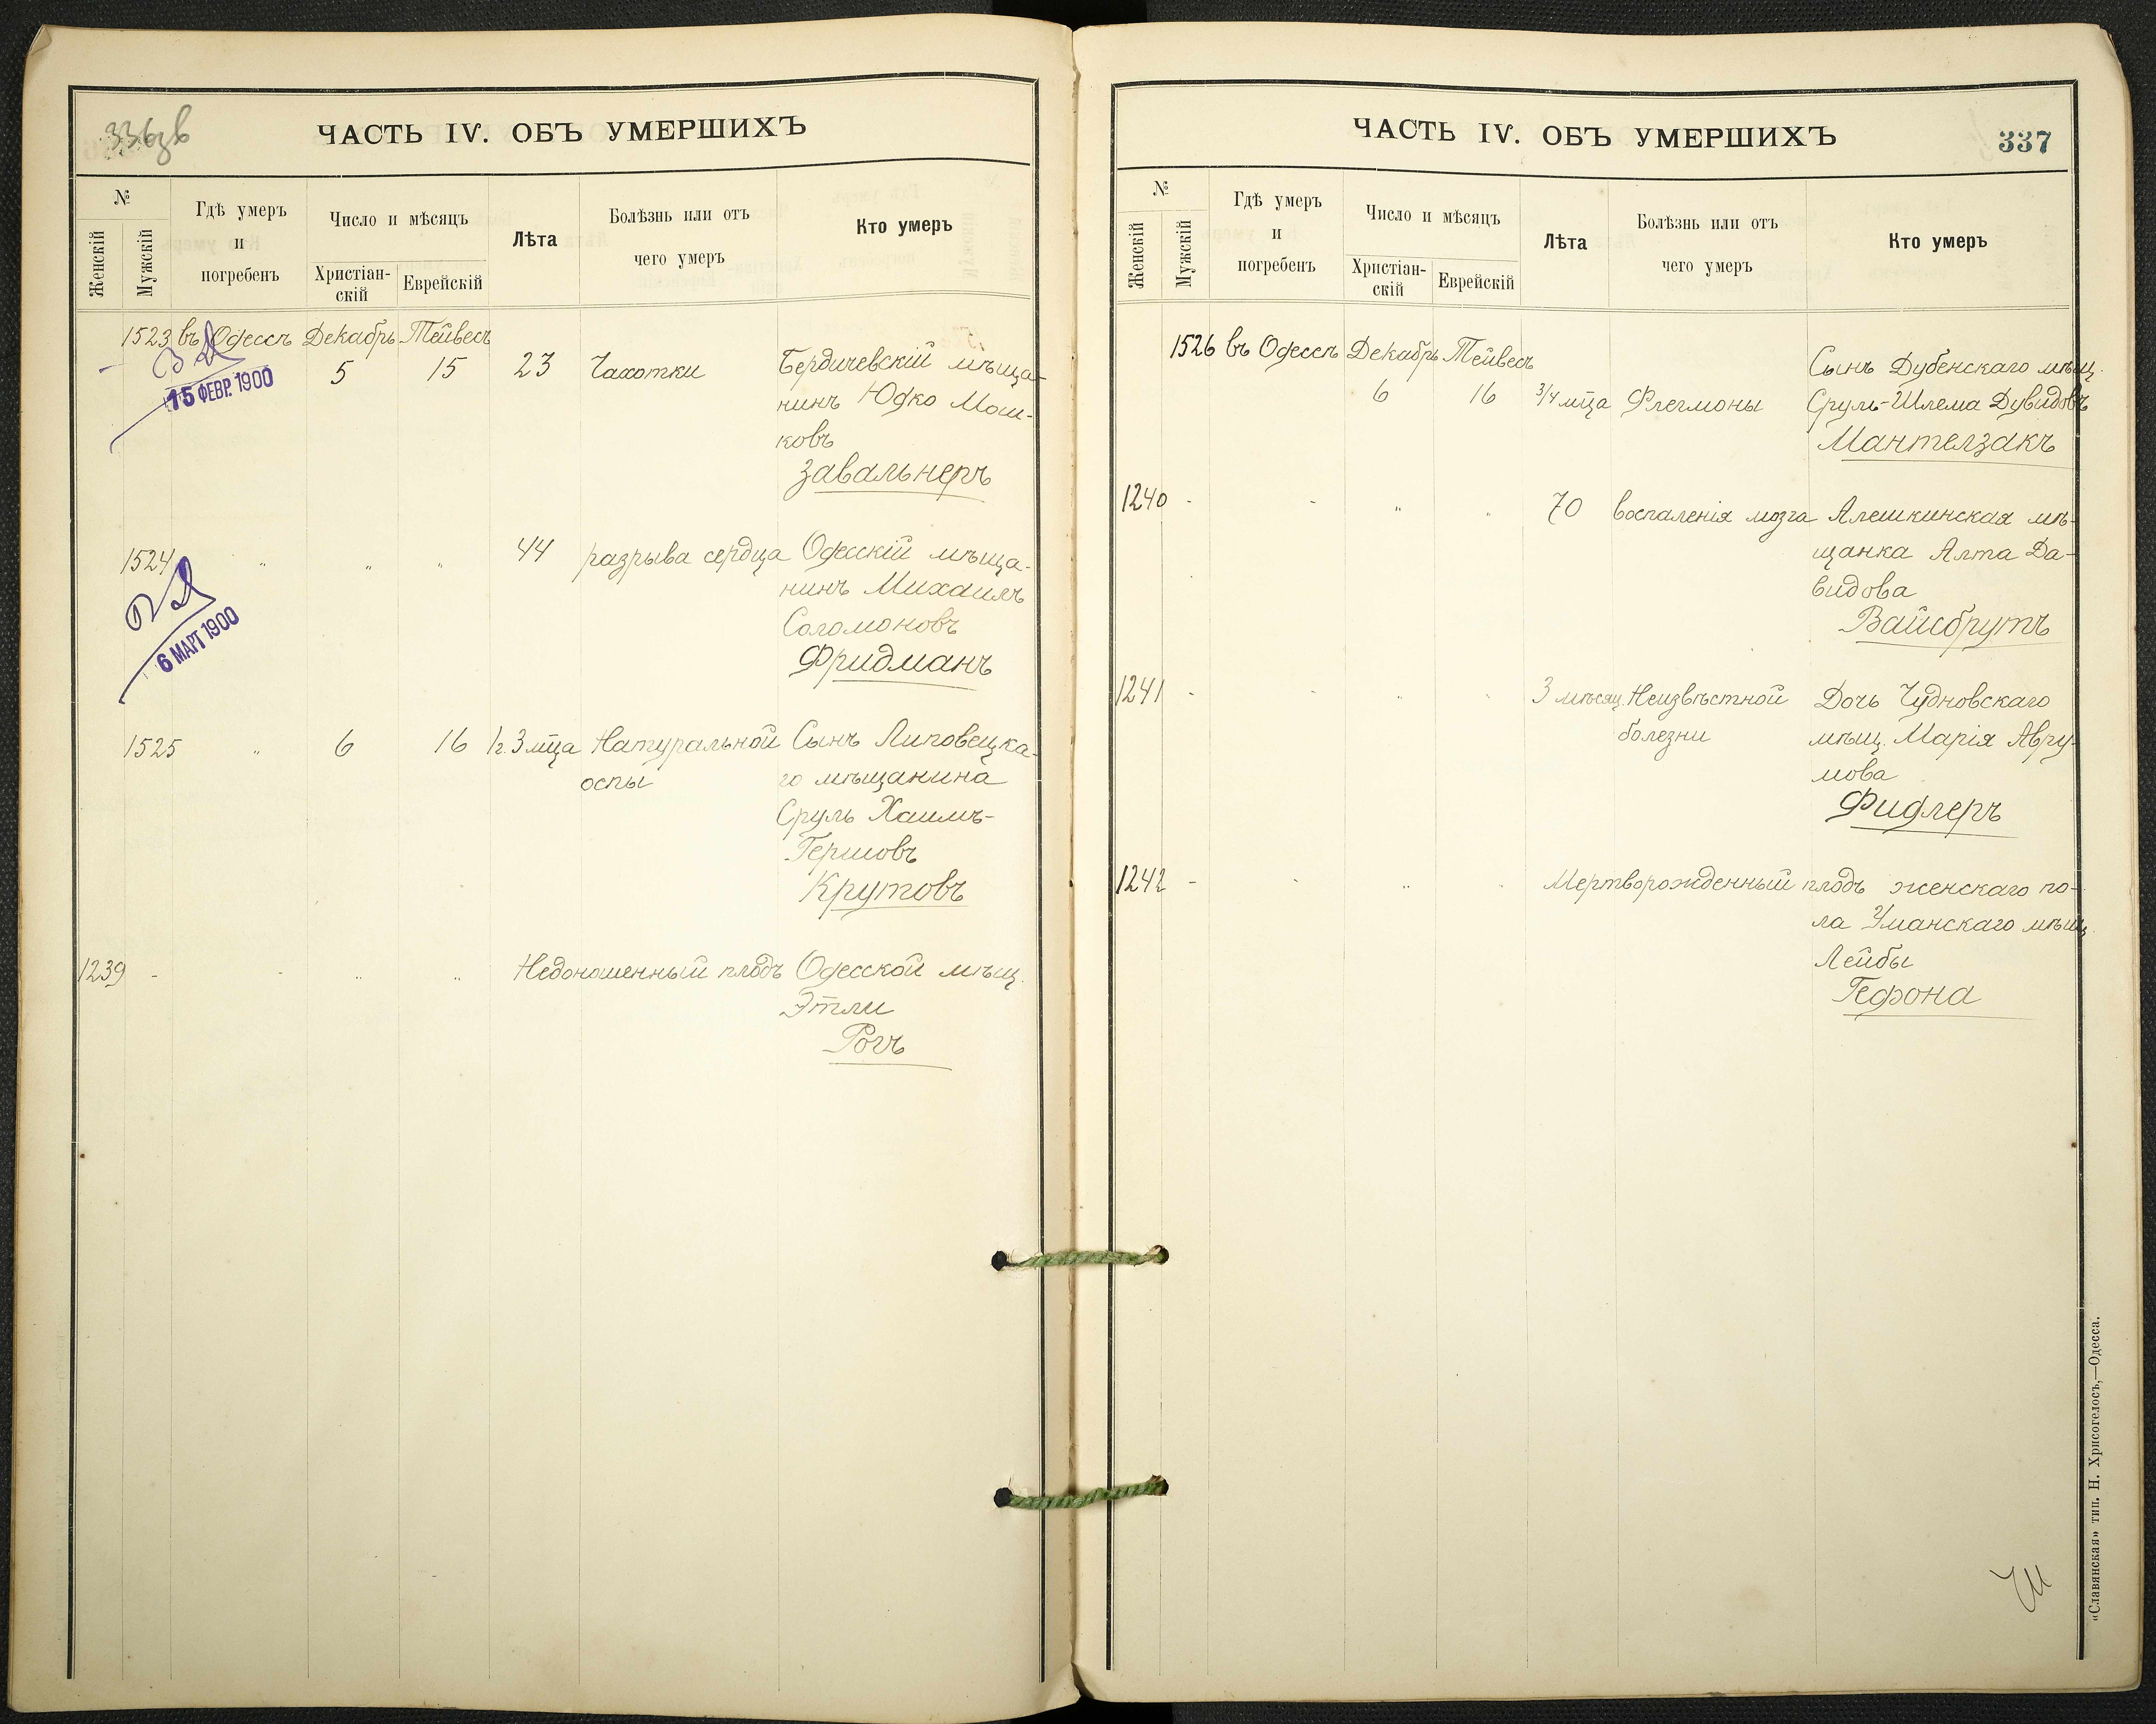 336зв
ЧАСТЬ IV. ОБЪ УМЕРШИХЪ
№
Женскій
Мужскій
Гдѣ умеръ
и
погребенъ
Число и мѣсяцъ
Христіан-
скій
Еврейскій
Лѣта
Болѣзнь или отъ
чего умеръ
Кто умеръ
1523 въ Одессѣ Декабрь Тейвесъ
5 15 23 Чахотки Бердичевскій мѣща-
нинъ Юдко Мош-
ковъ
Завальнеръ
15 ФЕВР. 1900
1524 " " " 44 разрыва сердца Одесскій мѣща-
нинъ Михаилъ
Соломоновъ
Фридманъ
6 МАРТ 1900
1525 " 6 16 1г. 3 мца Натуральной Сынъ Липовецка-
оспы го мѣщанина
Сруль Хаимъ-
Гершовъ
Крутовъ
1239 - - " " Недоношенный плодъ Одесской мѣщ.
Этли
Рогъ
ЧАСТЬ IV. ОБЪ УМЕРШИХЪ
337
№
Женскій
Мужскій
Гдѣ умеръ
и
погребенъ
Число и мѣсяцъ
Христіан-
скій
Еврейскій
Лѣта
Болѣзнь или отъ
чего умеръ
Кто умеръ
1526 въ Одессѣ Декабрь Тейвесъ
Сынъ Дубенскаго мѣщ.
6 16 3/4 мца Флегмоны Сруль-Шлема Дувидовъ
Мантелзакъ
1240 - - " " 70 воспаленія мозга Алешкинская мѣ-
щанка Алта Да-
видова
Вайсбрутъ
1241 - - " " 3 мѣсяц. Неизвѣстной Дочь Чудновскаго
болезни мѣщ. Марія Авру-
мова
Фидлеръ
1242 - - " " Мертворожденный плодъ женскаго по-
ла Уманскаго мѣщ.
Лейбы
Гефона
«Славянская» тип. Н. Хрисогелосъ,—Одесса.